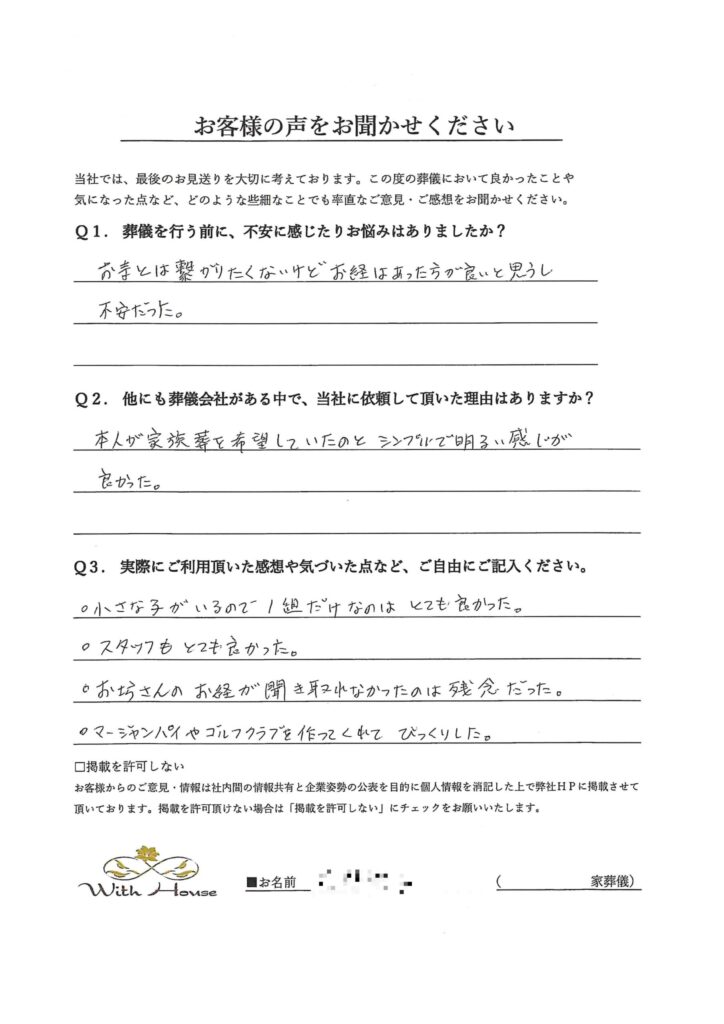 お客様の声をお聞かせください
当社では、最後のお見送りを大切に考えております。この度の葬儀において良かったことや
気になった点など、どのような些細なことでも率直なご意見・ご感想をお聞かせください。
Q1. 葬儀を行う前に、不安に感じたりお悩みはありましたか？
お寺とは繋がりたくないけどお経はあった方が良いと思うし
不安だった。
Q2. 他にも葬儀会社がある中で、当社に依頼して頂いた理由はありますか？
本人が家族葬を希望していたのと シンプルで明るい感じが
良かった。
Q3. 実際にご利用頂いた感想や気づいた点など、ご自由にご記入ください。
○小さな子がいるので 1組だけなのは とても良かった。
○スタッフも とても良かった。
○お坊さんの お経が 聞き取れなかったのは 残念だった。
○マージャンパイや ゴルフクラブを作ってくれて びっくりした。
□掲載を許可しない
お客様からのご意見・情報は社内間の情報共有と企業姿勢の公表を目的に個人情報を消記した上で弊社HPに掲載させて
頂いております。掲載を許可頂けない場合は「掲載を許可しない」にチェックをお願いいたします。
With House
■お名前 ( 家葬儀)